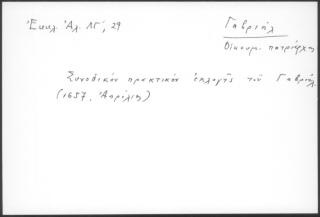 Ἐκκλ. Ἀλ. ΛΓ΄, 29
Γαβριήλ
Οἰκουμ. πατριάρχης
Συνοδικὸν πρακτικὸν ἐκλογῆς τοῦ Γαβριήλ.
(1657, Ἀπρίλιος)